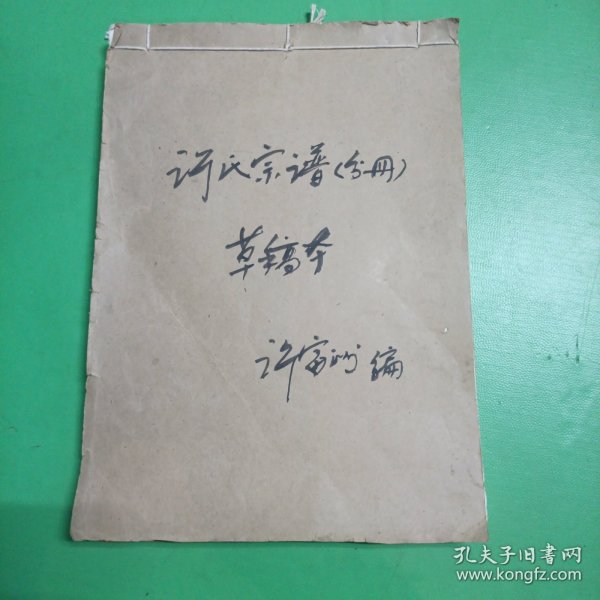 许氏宗谱(分册)
草稿本
许富 编
孔夫子旧书网
www.kongfz.com